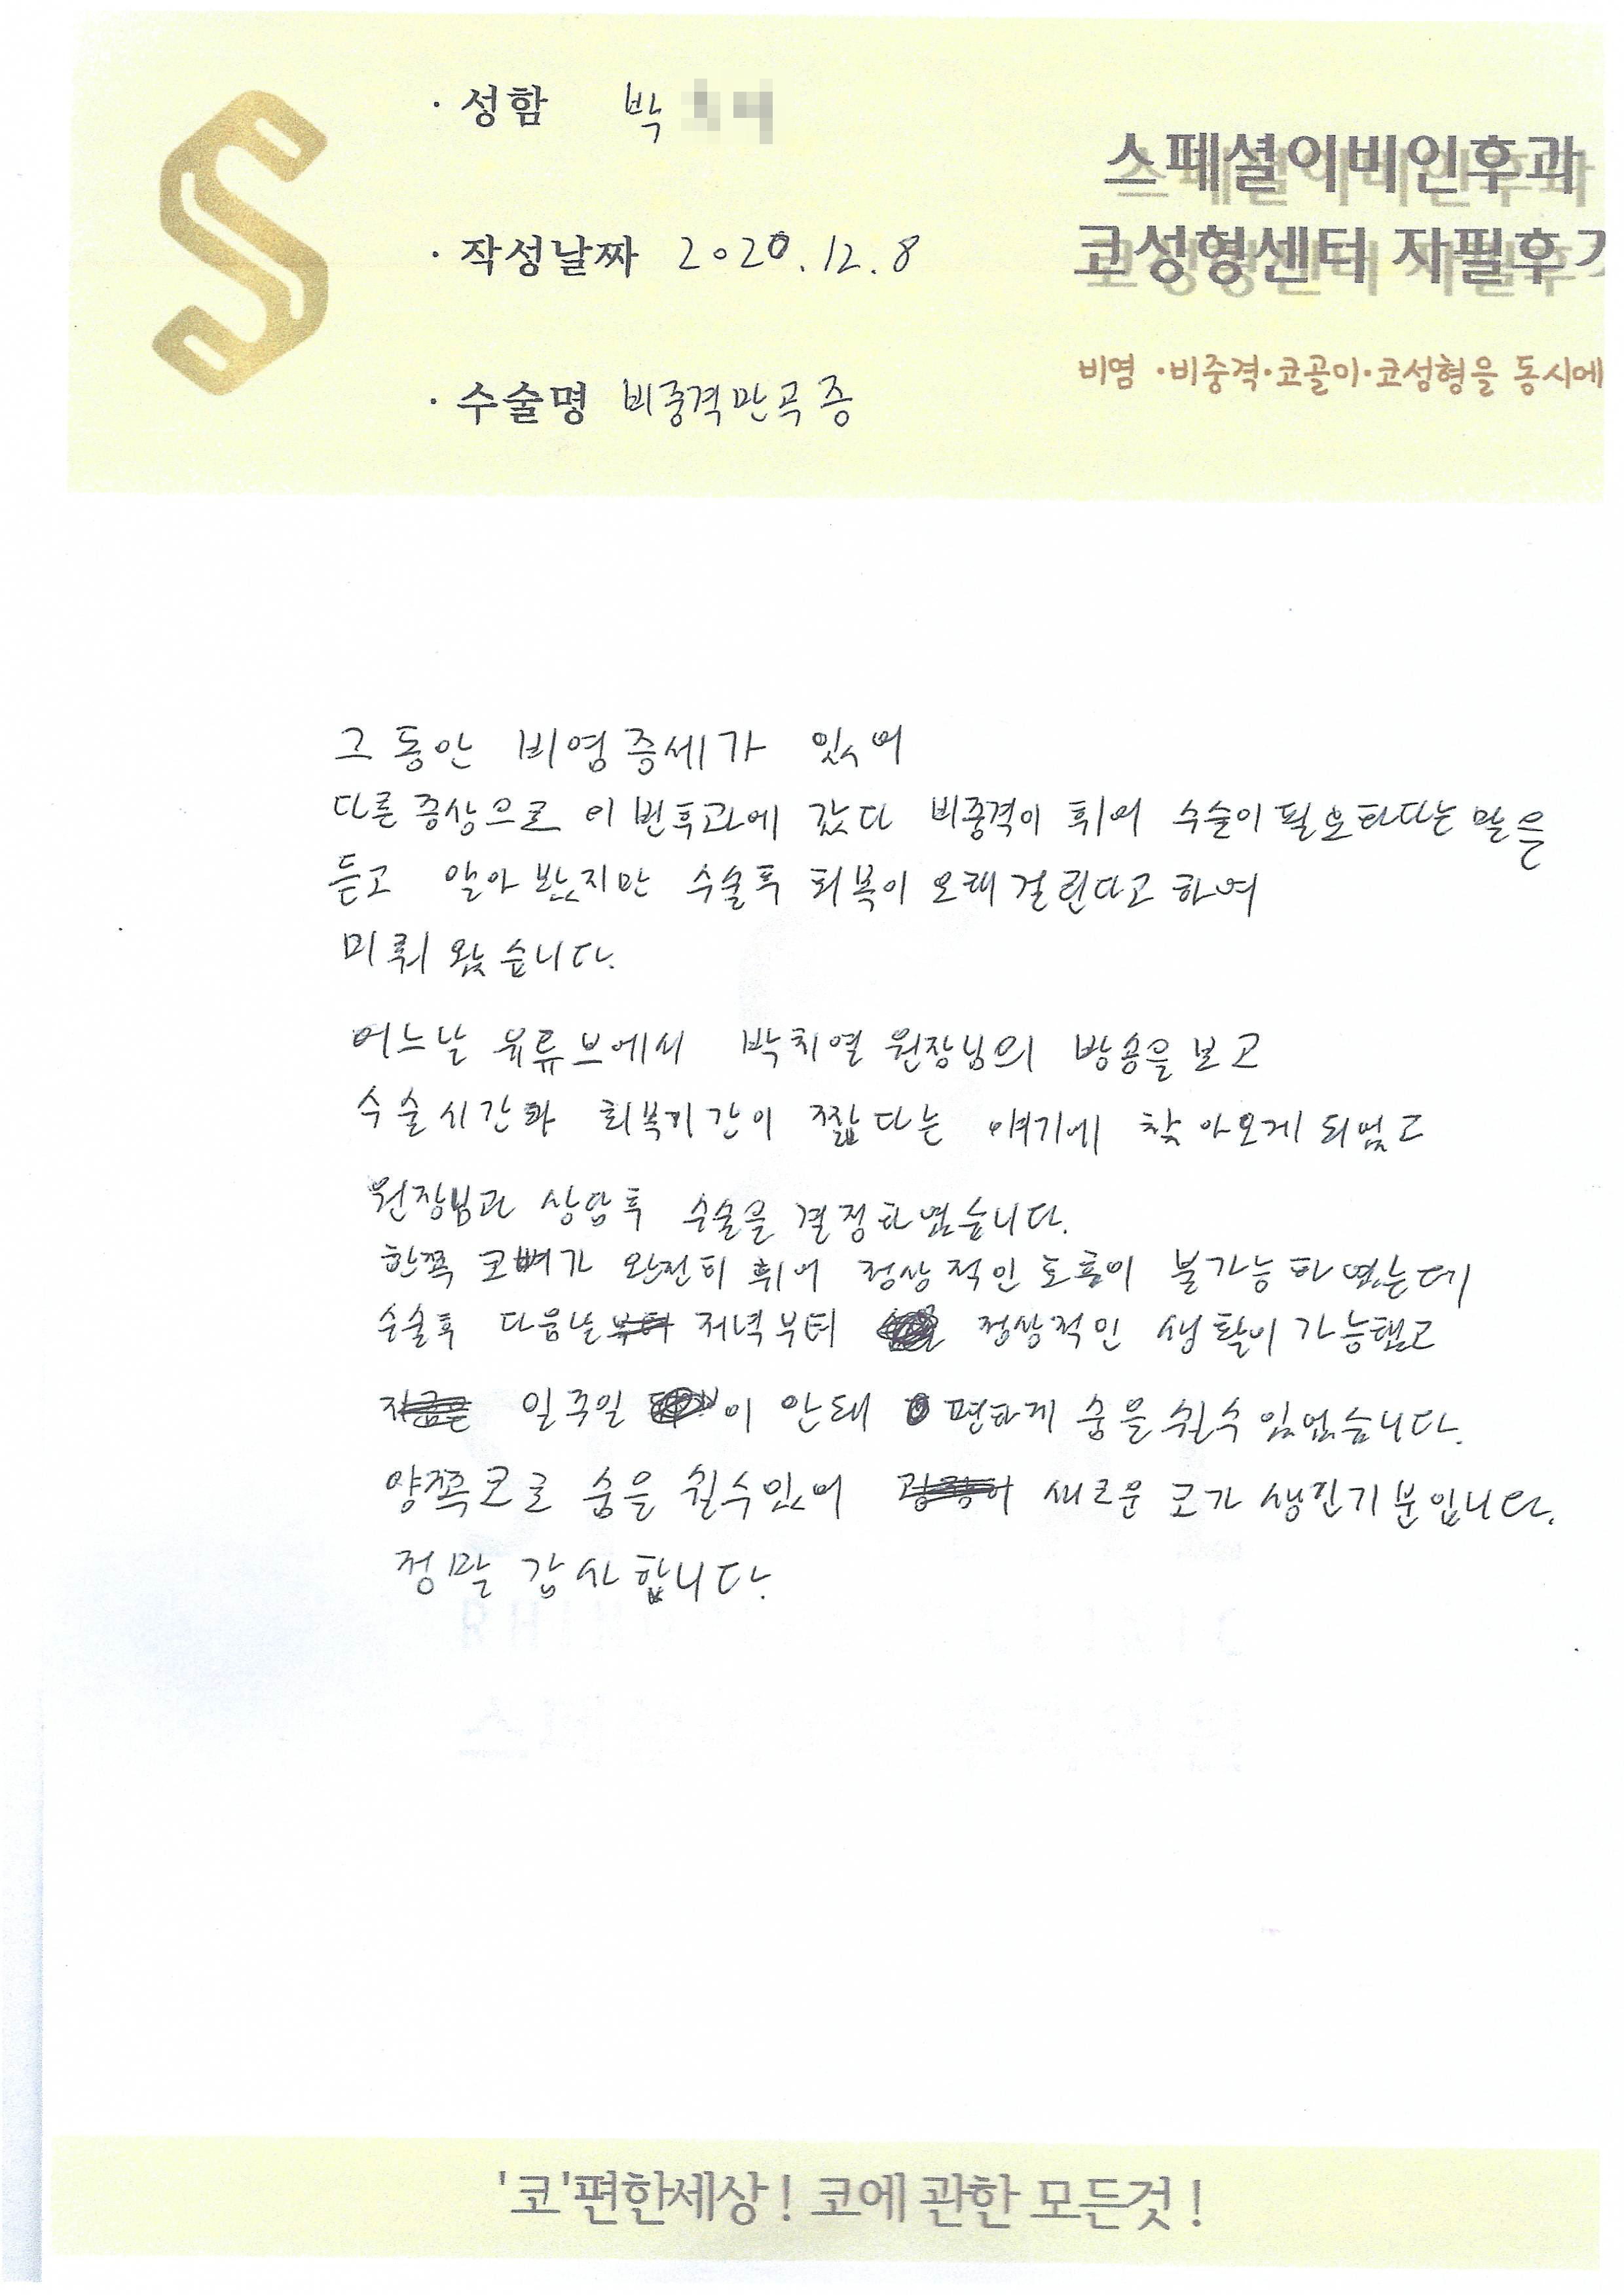 · 성함 박
· 작성날짜 2020.12.8
· 수술명 비중격만곡증
스페셜이비인후과
코성형센터 자필후기
비염·비중격·코골이·코성형을 동시에
그동안 비염증세가 있어
다른증상으로 이빈후과에 갔다 비중격이 휘어 수술이 필요하다는 말을
듣고 알아봤지만 수술후 회복이 오래걸린다고 하여
미뤄 왔습니다.
어느날 유튜브에서 박치열 원장님의 방송을 보고
수술시간과 회복기간이 짧다는 얘기에 찾아오게 되었고
원장님과 상담후 수술을 결정하였습니다.
한쪽 코뼈가 완전히 휘어 정상적인 호흡이 불가능하였는데
수술후 다음날 저녁부터 정상적인 생활이 가능했고
일주일이 안돼 편하게 숨을 쉴수 있었습니다.
양쪽코로 숨을 쉴수있어 새로운 코가 생긴기분입니다.
정말 감사합니다.
'코'편한세상! 코에 관한 모든것!